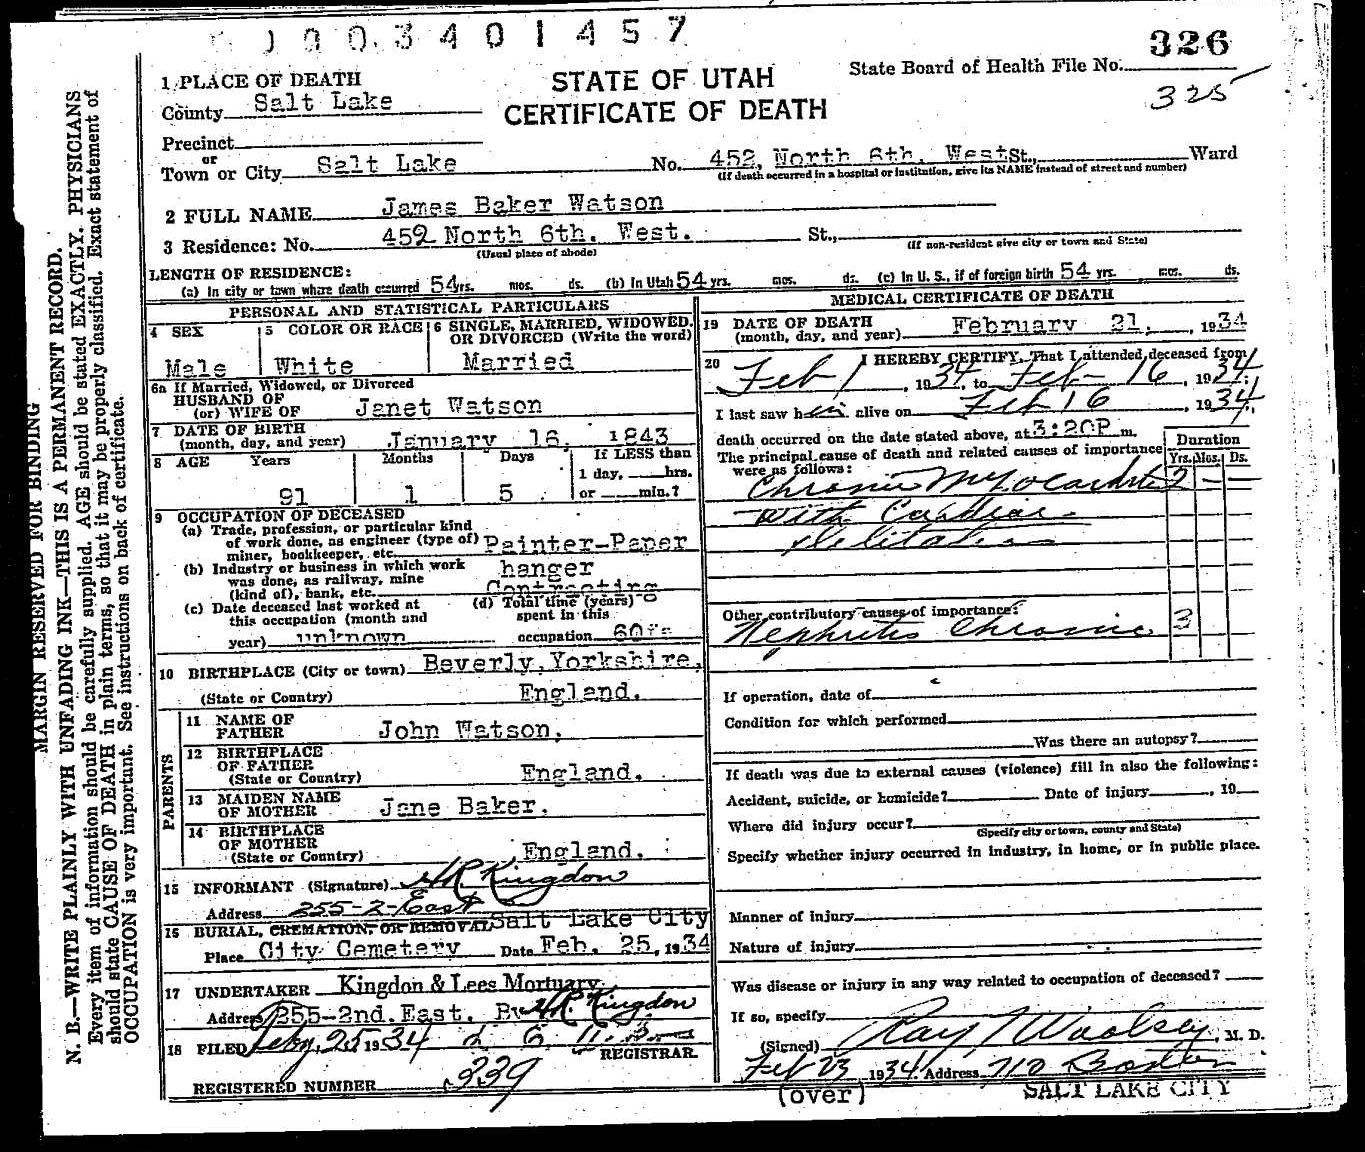 0003401457
326
State Board of Health File No.
325
STATE OF UTAH
CERTIFICATE OF DEATH
1 PLACE OF DEATH
County Salt Lake
Precinct
or
Town or City Salt Lake No. 452, North 6th. West St., Ward
(If death occurred in a hospital or institution, give its NAME instead of street and number)
2 FULL NAME James Baker Watson
3 Residence: No. 452 North 6th. West. St.,
(Usual place of abode) (If non-resident give city or town and State)
LENGTH OF RESIDENCE:
(a) In city or town where death occurred 54 yrs. mos. ds. (b) In Utah 54 yrs. mos. ds. (c) In U. S., if of foreign birth 54 yrs. mos. ds.
PERSONAL AND STATISTICAL PARTICULARS
4 SEX
Male
5 COLOR OR RACE
White
6 SINGLE, MARRIED, WIDOWED,
OR DIVORCED (Write the word)
Married
6a If Married, Widowed, or Divorced
HUSBAND OF
(or) WIFE OF Janet Watson
7 DATE OF BIRTH
(month, day, and year) January 16, 1843
8 AGE Years Months Days If LESS than
1 day, hrs.
91 1 5 or min.?
9 OCCUPATION OF DECEASED
(a) Trade, profession, or particular kind
of work done, as engineer (type of)
miner, bookkeeper, etc. Painter-Paper
hanger
(b) Industry or business in which work
was done, as railway, mine
(kind of), bank, etc. Contracting
(c) Date deceased last worked at
this occupation (month and
year) unknown
(d) Total time (years)
spent in this
occupation 60rs
10 BIRTHPLACE (City or town) Beverly, Yorkshire,
(State or Country) England.
PARENTS
11 NAME OF
FATHER John Watson.
12 BIRTHPLACE
OF FATHER
(State or Country) England.
13 MAIDEN NAME
OF MOTHER Jane Baker.
14 BIRTHPLACE
OF MOTHER
(State or Country) England.
15 INFORMANT (Signature) H R Kingdon
Address 255-2-East
16 BURIAL, CREMATION, OR REMOVAL Salt Lake City
Place City Cemetery Date Feb. 25, 1934
17 UNDERTAKER Kingdon & Lees Mortuary.
Address 255-2nd. East. By H R Kingdon
18 FILED Feby. 25 1934
REGISTRAR.
REGISTERED NUMBER 339
MEDICAL CERTIFICATE OF DEATH
19 DATE OF DEATH
(month, day, and year) February 21, 1934
20 I HEREBY CERTIFY, That I attended deceased from
Feb 1, 1934, to Feb 16, 1934;
I last saw him alive on Feb 16, 1934,
death occurred on the date stated above, at 3:20P m.
The principal cause of death and related causes of importance
were as follows:
Duration
Yrs. Mos. Ds.
Chronic Myocarditis 2 - -
with Cardiac
dilitation
Other contributory causes of importance:
Nephritis Chronic 3
If operation, date of
Condition for which performed
Was there an autopsy?
If death was due to external causes (violence) fill in also the following:
Accident, suicide, or homicide? Date of injury , 19
Where did injury occur?
(Specify city or town, county and State)
Specify whether injury occurred in industry, in home, or in public place.
Manner of injury
Nature of injury
Was disease or injury in any way related to occupation of deceased?
If so, specify
(Signed) Ray T Woolsey, M. D.
Feb 23 1934 Address 710 Boston
(over) SALT LAKE CITY
MARGIN RESERVED FOR BINDING
N. B.—WRITE PLAINLY WITH UNFADING INK—THIS IS A PERMANENT RECORD.
Every item of information should be carefully supplied. AGE should be stated EXACTLY. PHYSICIANS
should state CAUSE OF DEATH in plain terms, so that it may be properly classified. Exact statement of
OCCUPATION is very important. See instructions on back of certificate.